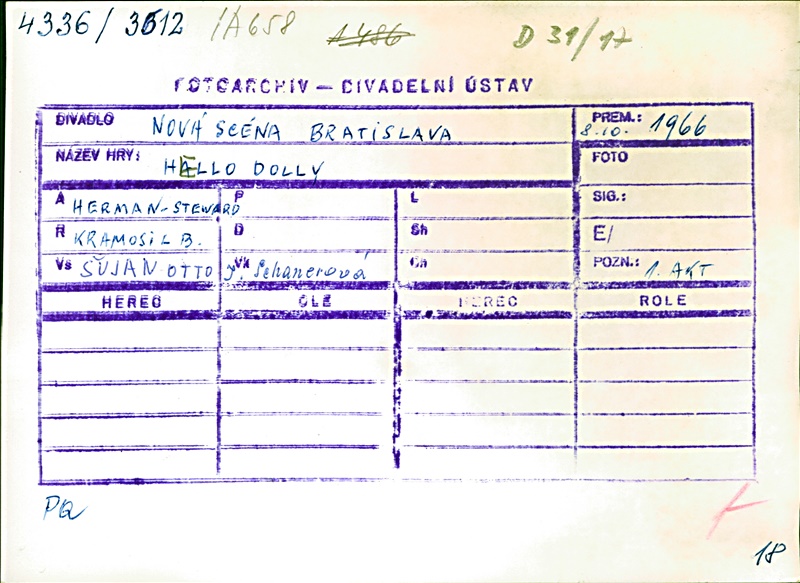 4336 / 3612 /A658 1486 D 31/17
FOTOARCHIV — DIVADELNÍ ÚSTAV
DIVADLO NOVÁ SCÉNA BRATISLAVA PREM.: 8.10. 1966
NÁZEV HRY: HELLO DOLLY FOTO
A HERMAN-STEWARD P L SIG.:
R KRAMOSIL B. D Sh E/
Vs ŠUJAN OTTO Vk J. Schanerová Ch POZN.: 1. AKT
HEREC OLE HEREC ROLE
PQ
18